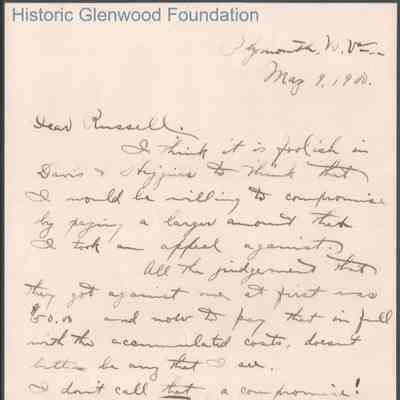 Historic Glenwood Foundation
Plymouth, W. Va.
May 9, 1900.
Dear Russell:
I think it is foolish in
Davis & Higgins to think that
I would be willing to compromise
by paying a larger amount than
I took an appeal against.
All the judgement that
they got against me at first was
and now to pay that in full
with the accumulated costs, doesnt
be any that I see.
I don't call that a compromise!